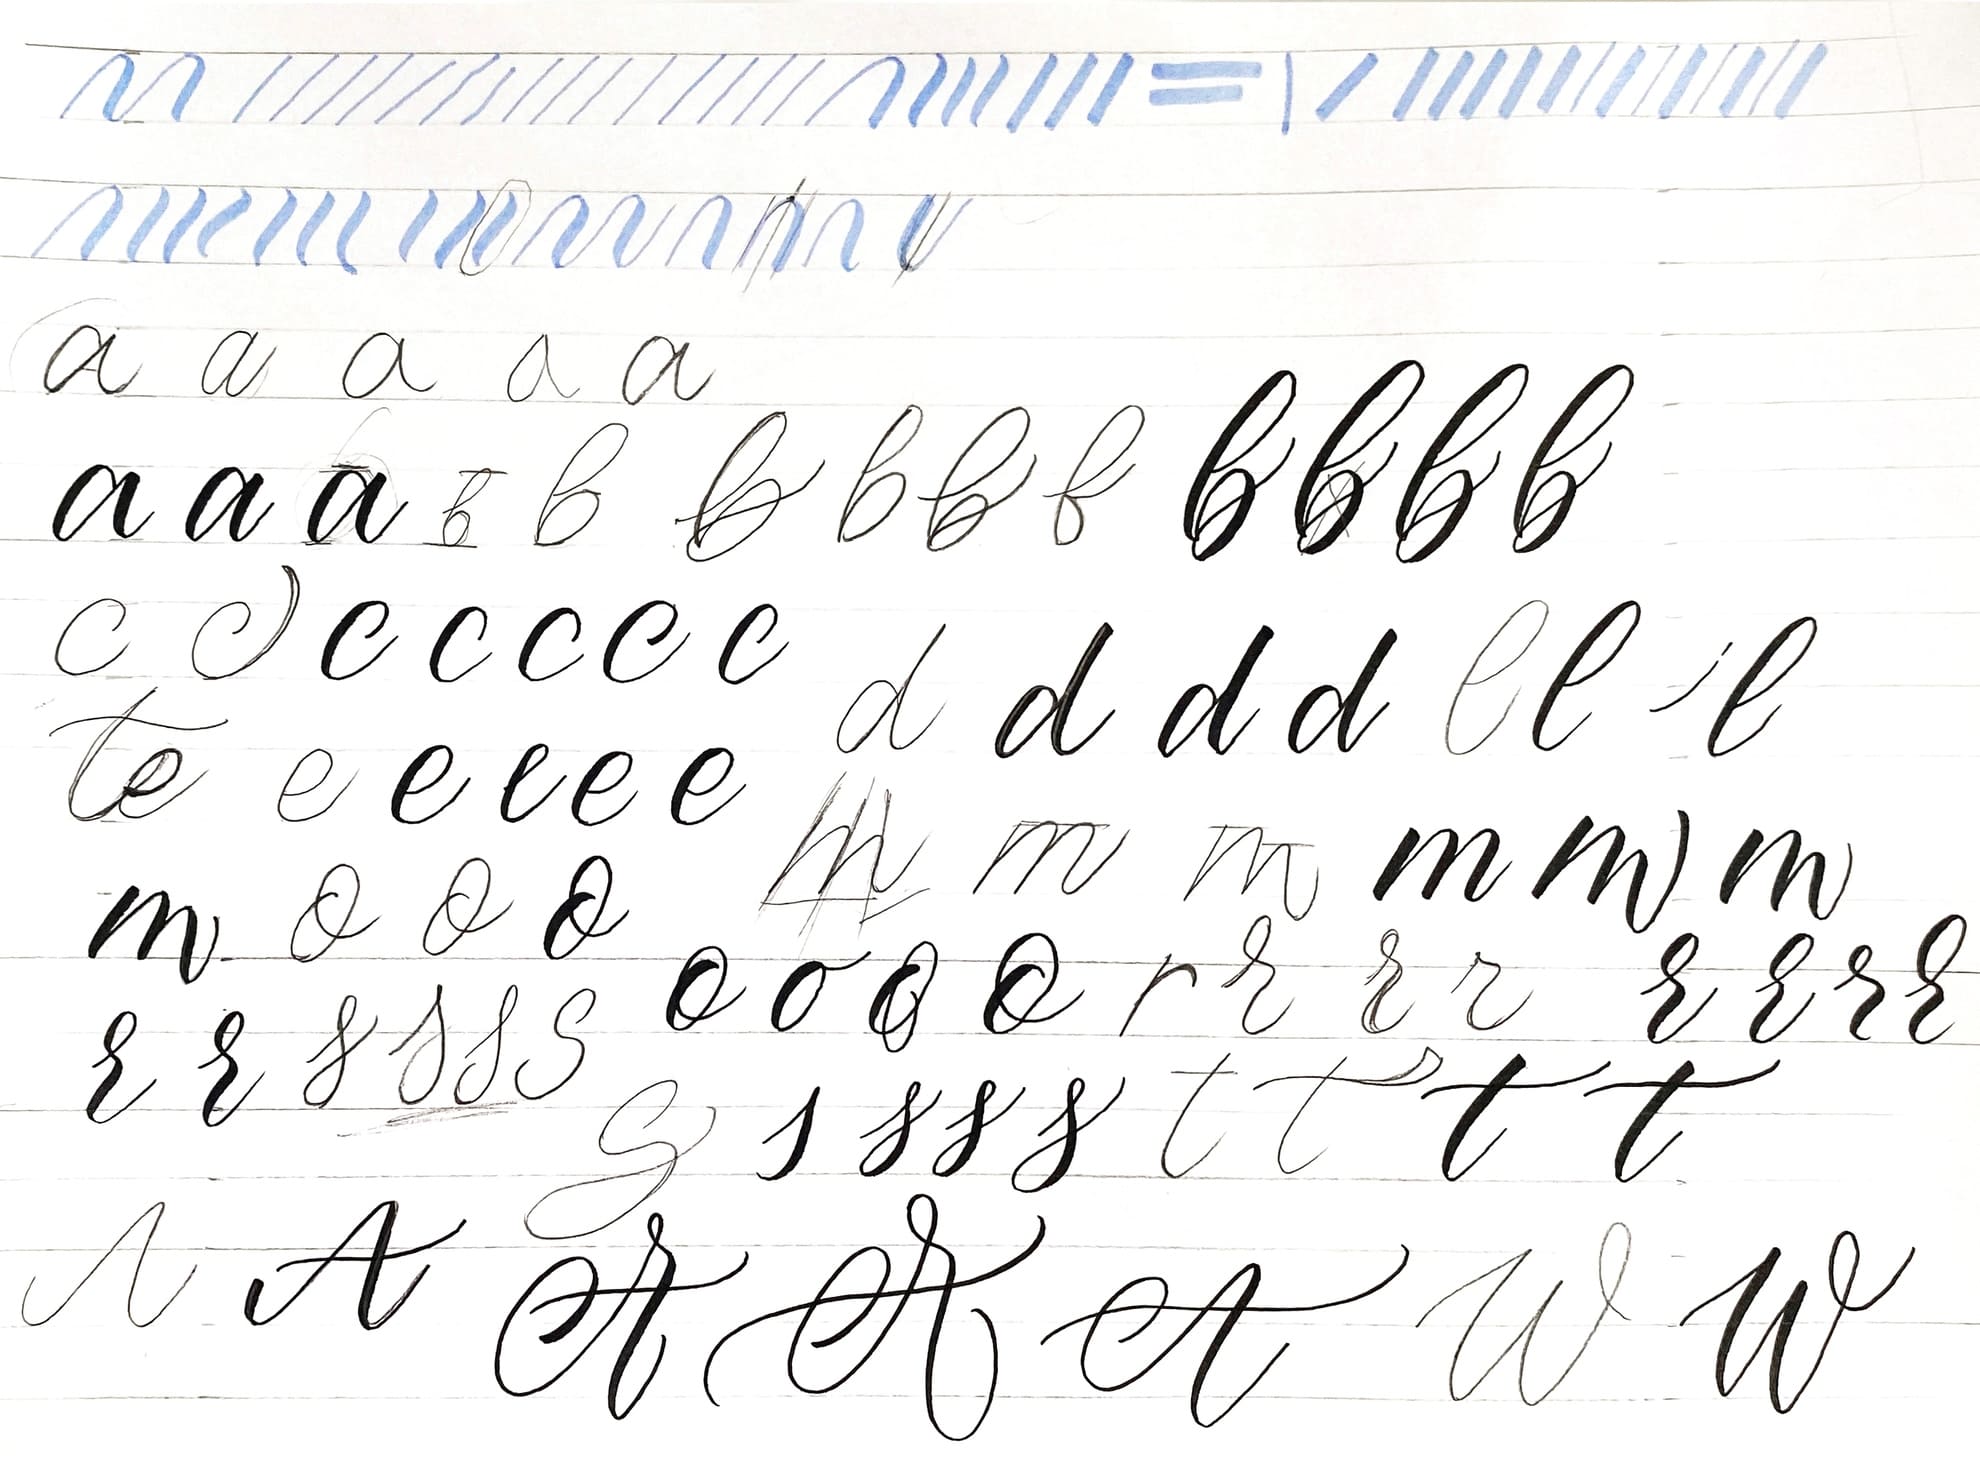 a a a a a
a a a b b b b b b b b b b
c c c c c c c d d d d l l l
te e e e e e m m m m m m
m o o o o o o o r r r r r r r r
r r s s s s s s s s s t t t t
A A A A A W W